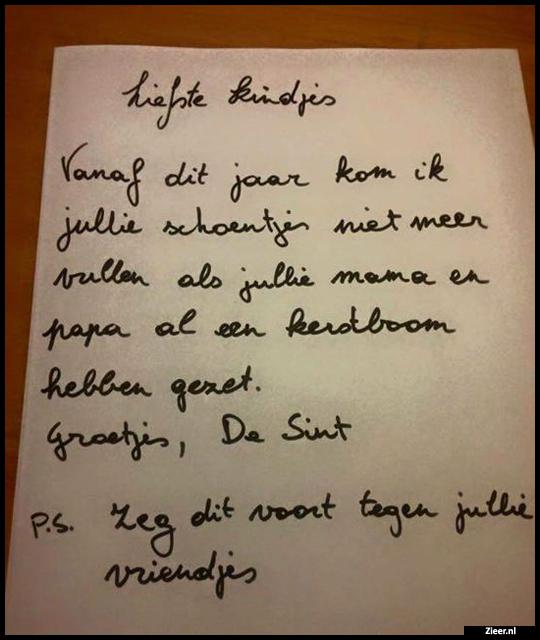 Liefste kindjes
Vanaf dit jaar kom ik
jullie schoentjes niet meer
vullen als jullie mama en
papa al een kerstboom
hebben gezet.
Groetjes, De Sint
P.S. Zeg dit voort tegen jullie
vriendjes
Zieer.nl